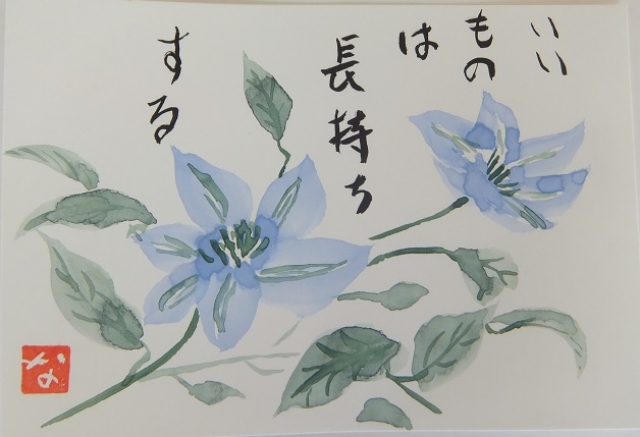 いい
もの
は
長持ち
する
な